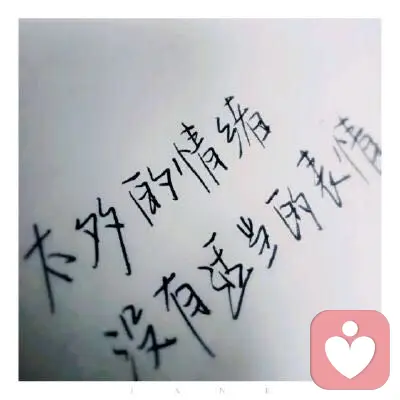 太多的情绪
没有适当的表情